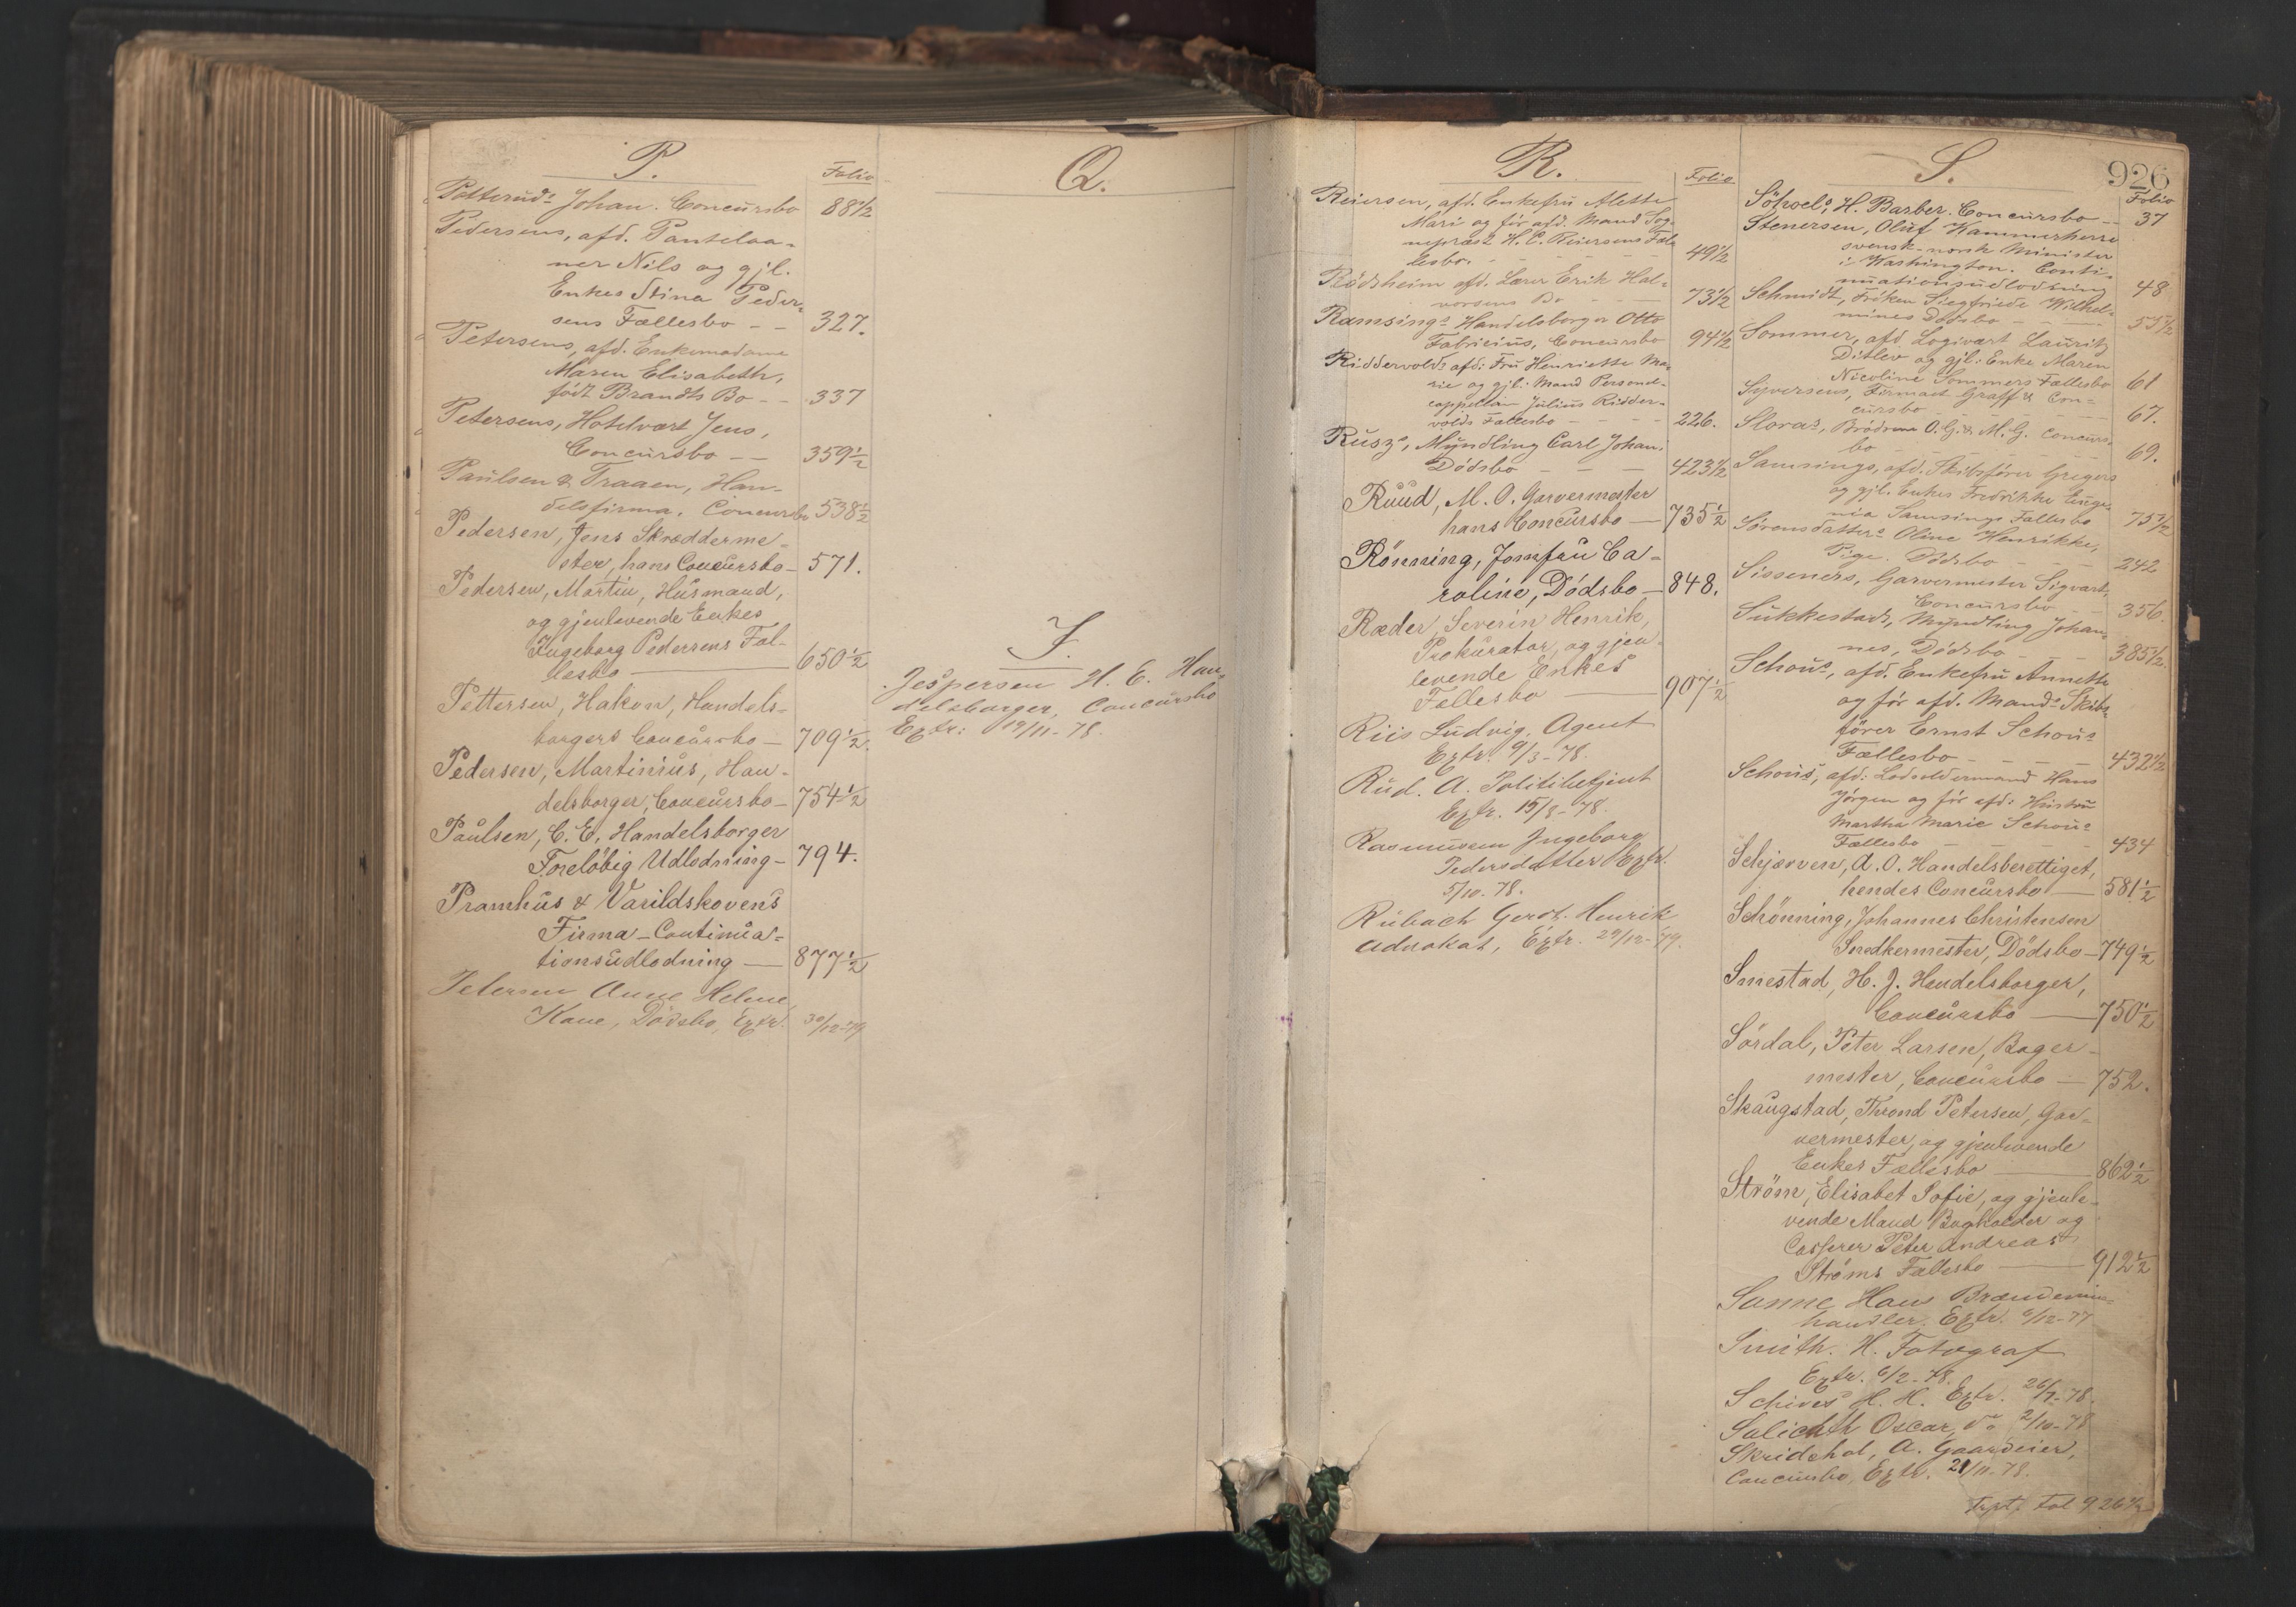 P.
Folio
Potteruds Johan. Concursbo 88 1/2
Pedersens, afd. Pantelaa-
ner Nils og gjl.
Enkes Stina Peder-
sens Fællesbo - - 327.
Petersens, afd. Enkemadame
Maren Elisabeth,
født Brandts Bo - - 337
Petersens, Hotelvært Jens,
Concursbo - - 359 1/2
Paulsen & Traaen, Han-
delsfirma, Concursbo 538 1/2
Pedersen, Jens Skrædderme-
ster, hans Concursbo - 571.
Pedersen, Martin, Husmand,
og gjenlevende Enkes
Ingeborg Pedersens Fæl-
lesbo - 650 1/2
Pettersen, Hakon, Handels-
borgers Concursbo - 709 1/2.
Pedersen, Martinius, Han-
delsborger, Concursbo - 754 1/2
Paulsen, C. E. Handelsborger
Foreløbig Udlodning - 794.
Pramhus & Varildskovens
Firma - Continua-
tionsudlodning - 877 1/2
Petersen Anne Helene,
Kone, Dødsbo, Extr. 30/12-79
Q.
J.
Jespersen H. E. Han-
delsborger, Concursbo
Extr: 19/11-78.
R.
Folio
Reiersen, afd. Enkefru Alette
Mari og før afd. Mand Sog-
nepræst H. C. Reiersens Fæl-
lesbo. - - - 49 1/2
Rødsheim afd. Lærer Erik Hal-
vorsens Bo - - - 73 1/2
Ramsings Handelsborger Otto
Fabricius, Concursbo 94 1/2
Riddervolds afd: Fru Henriette Ma-
rie og gjl. Mand Personel-
cappellan Julius Ridder-
volds Fællesbo - - - 226.
Rusz's, Myndling Carl Johan.
Dødsbo - - - 423 1/2
Ruud, M. O. Garvermester
hans Concursbo - 735 1/2
Rønning, Jomfru Ca-
roline, Dødsbo - 848.
Ræder, Severin Henrik,
Prokurator, og gjen-
levende Enkes
Fællesbo - 907 1/2
Riis Ludvig, Agent
Extr. 9/3-78.
Rud. A. Politibetjent
Extr. 15/8-78.
Rasmussen Ingeborg
Pedersdatter Extr.
5/10-78.
Rubach Gerdt. Henrik
Advokat, Extr. 29/12-79.
S.
926
Folio
Søhoels, H. Barber. Concursbo - - 37
Stenersen, Oluf Kammerherre
svensk-norsk Minister
i Washington. Conti-
nuationsudlodning 48
Schmidt, Frøken Siegfriede Wilhel-
mines Dødsbo - - 55 1/2
Sommer, afd. Logivært Lauritz
Ditlev og gjl: Enke Maren
Nicoline Sommers Fællesbo 61
Syversens, Firmaet Graff & Con-
cursbo - - - 67.
Sloras, Brødrene O. G. & M. G. Concurs-
bo - - - 69.
Samsings, afd. Skibsfører Gregers
og gjl. Enkes Fredrikke Euge-
nia Samsings Fællesbo 75 1/2
Sørensdatters Oline Henrikke,
Pige. Dødsbo - - - 242
Sisseners, Garvermester Sigvart,
Concursbo - - 356.
Sukkestads, Myndling Johan-
nes, Dødsbo - - - 385 1/2.
Schous, afd. Enkefru Annette
og før afd. Mands Skibs-
fører Ernst Schous
Fællesbo - - - 432 1/2
Schous, afd: Lodsoldermand Hans
Jørgen og før afd: Hustru
Martha Marie Schous
Fællesbo - - - 434
Schjærven, A. O. Handelsberettiget,
hendes Concursbo - 581 1/2
Schønning, Johannes Christensen
Snedkermester, Dødsbo - 749 1/2
Smestad, H. J. Handelsborger,
Concursbo - 750 1/2
Sørdal, Peter Larsen, Bager-
mester, Concursbo - 752.
Skaugstad, Thrond Petersen, Gar-
vermester, og gjenlevende
Enkes Fællesbo - 862 1/2
Strøm, Elisabet Sofie, og gjenle-
vende Mand Bogholder og
Casserer Peter Andreas
Strøms Fællesbo - 912 1/2
Sanne Hans Brændevins-
handler. Extr. 6/12-77
Smith. H. Fotograf
Extr. 6/2-78.
Schives H. H. Extr. 26/7-78.
Salicath Oscar, do 2/10-78
Skridshol, A. Gaardeier,
Concursbo, Extr. 21/11-78.
Fol 926 1/2